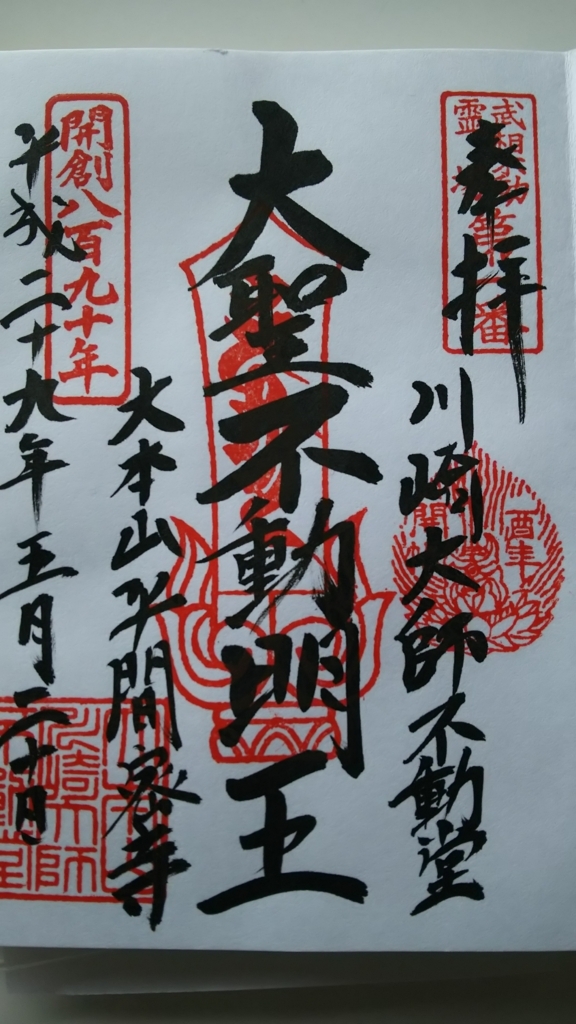 奉拝
武相不動
霊場
第一番
川崎大師不動堂
酉年
開帳
大聖不動明王
大本山平間寺
開創八百九十年
平成二十九年五月二十日